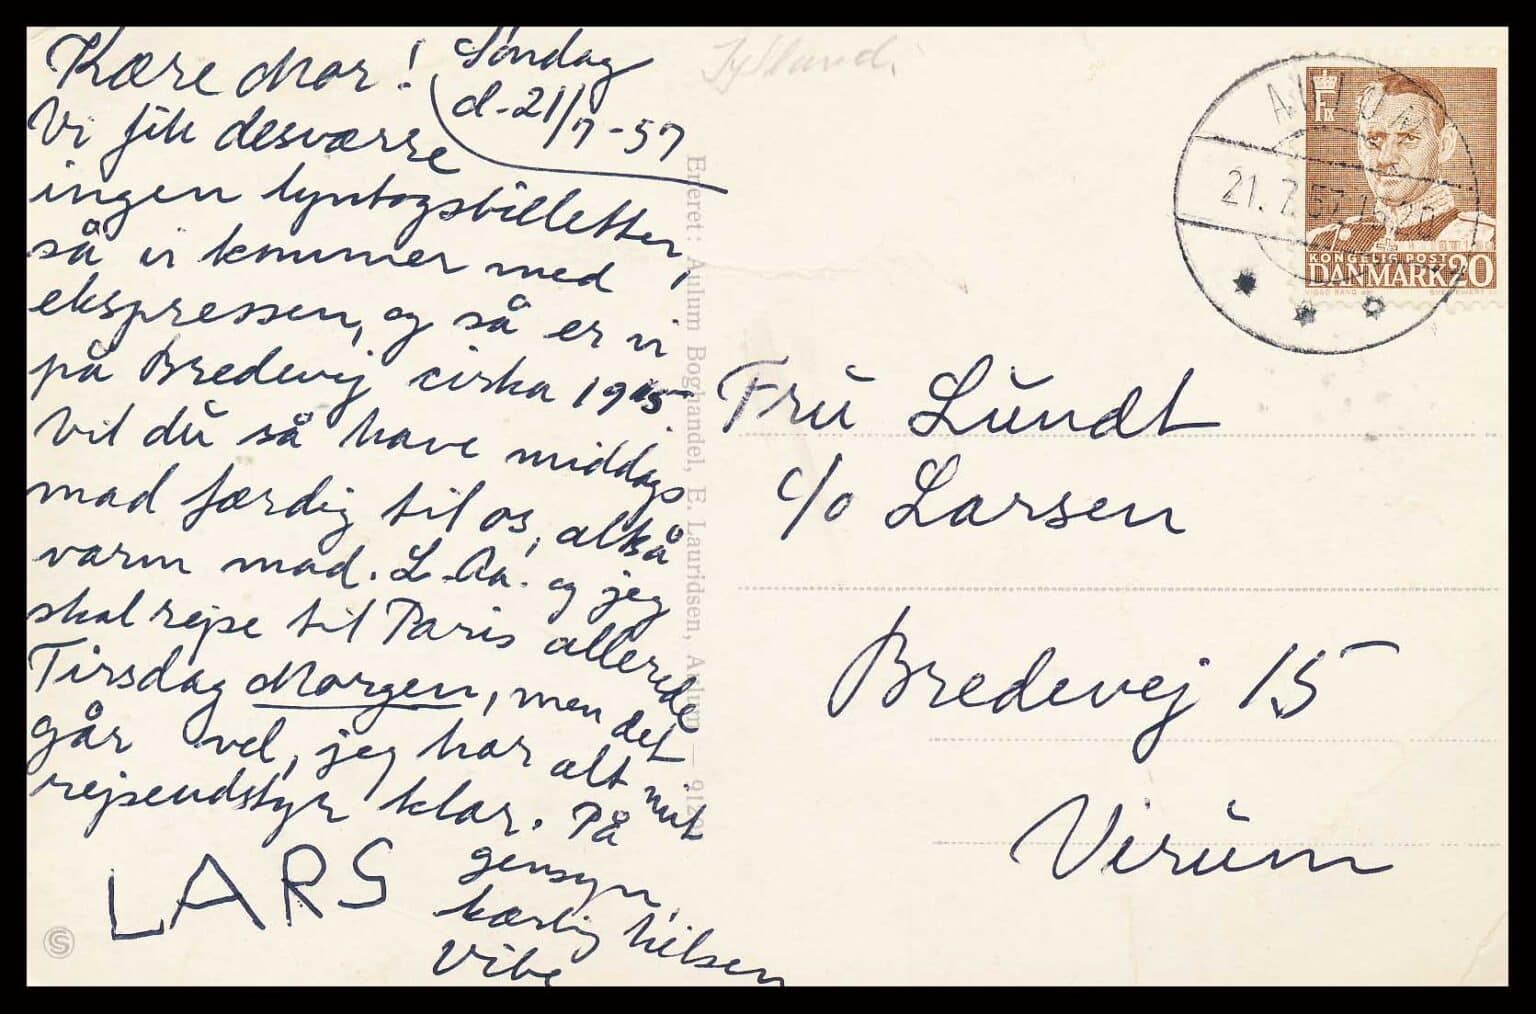 Kære Mor!
Søndag
d. 21/7-57
Vi fik desværre
ingen lyntogsbilletter,
så vi kommer med
ekspressen, og så er vi
på Bredevej cirka 1915.
Vil du så have middags
mad færdig til os, altså
varm mad. L-Aa. og jeg
skal rejse til Paris allerede
Tirsdag Morgen, men det
går vel, jeg har alt mit
rejseudstyr klar. På
gensyn,
kærlig hilsen
Vibe
LARS
Jylland.
Eneret: Aulum Boghandel, E. Lauridsen, Aulum —
21.7.57
F IX
KONGELIG POST
DANMARK 20
Frú Lundt
c/o Larsen
Bredevej 15
Virum